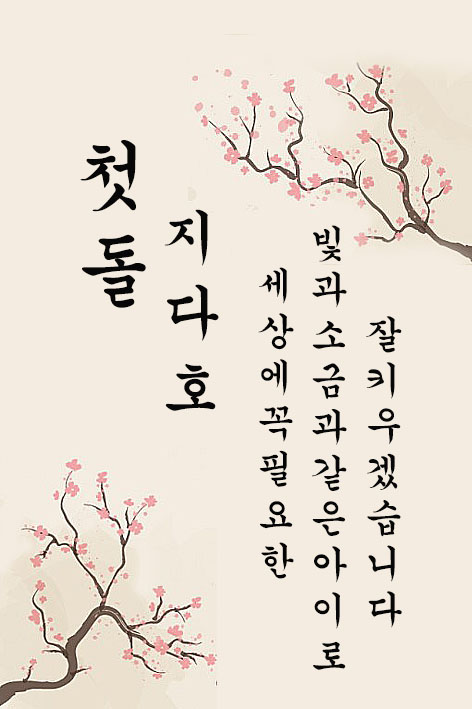 첫돌
지다호
세상에꼭필요한
빛과소금과같은아이로
잘키우겠습니다